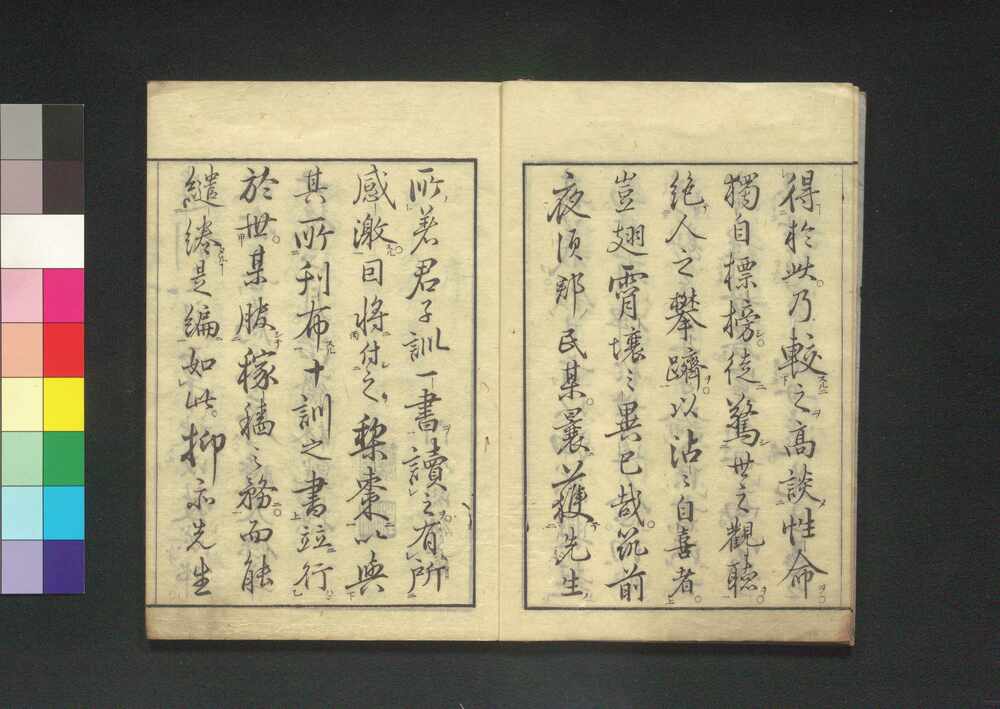 得於此乃較之高談性命
獨自標榜徒驚世之觀聽
絶人之攀躋以沾々自喜者
豈翅霄壤之異已哉筑前
夜須郡民某曩獲先生
所著君子訓一書讀之有所
感激因將付之梨棗以與
其所刊布十訓之書竝行
於世某服稼穡之務而能
繾綣是編如此抑亦先生